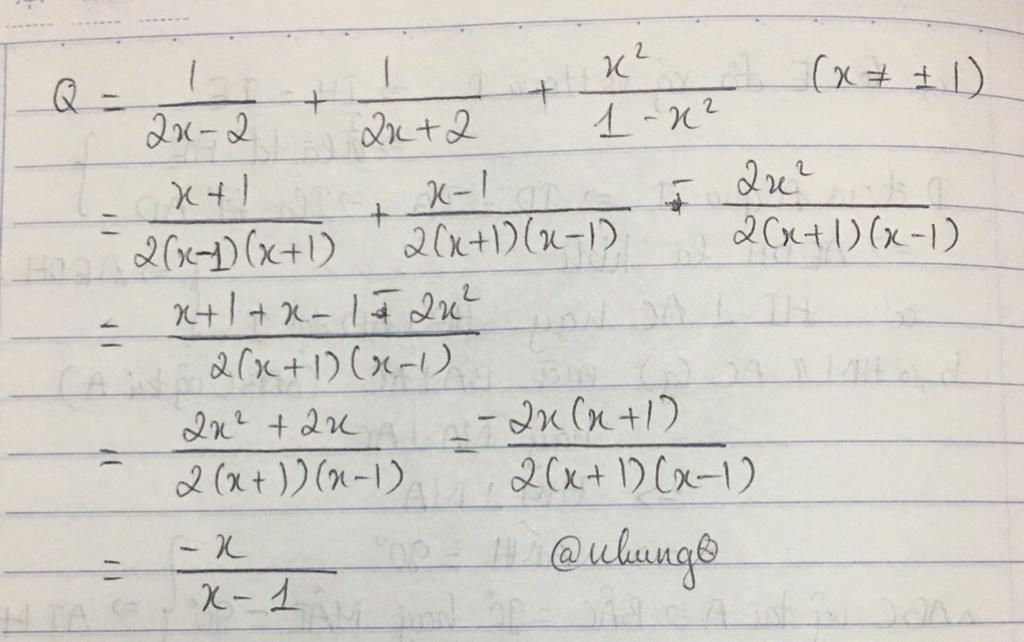 Q = 1/(2x-2) + 1/(2x+2) + x²/(1-x²) (x ≠ ±1)
= (x+1)/(2(x-1)(x+1)) + (x-1)/(2(x+1)(x-1)) - 2x²/(2(x+1)(x-1))
= (x+1+x-1-2x²)/(2(x+1)(x-1))
= (2x²+2x)/(2(x+1)(x-1)) = -2x(x+1)/(2(x+1)(x-1))
= -x/(x-1)